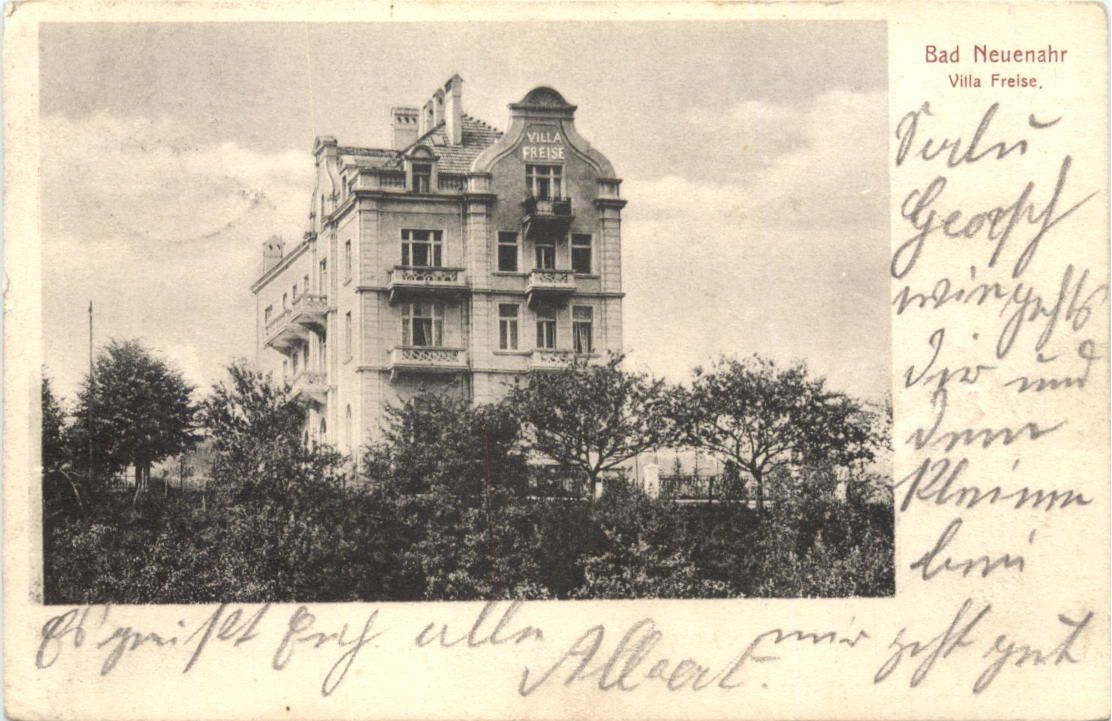 Bad Neuenahr
Villa Freise.
VILLA
FREISE
Georg
wie gehts
Dir und
Deine
Kleinen
Es grüßt Euch alle
Albert.
mir geht gut